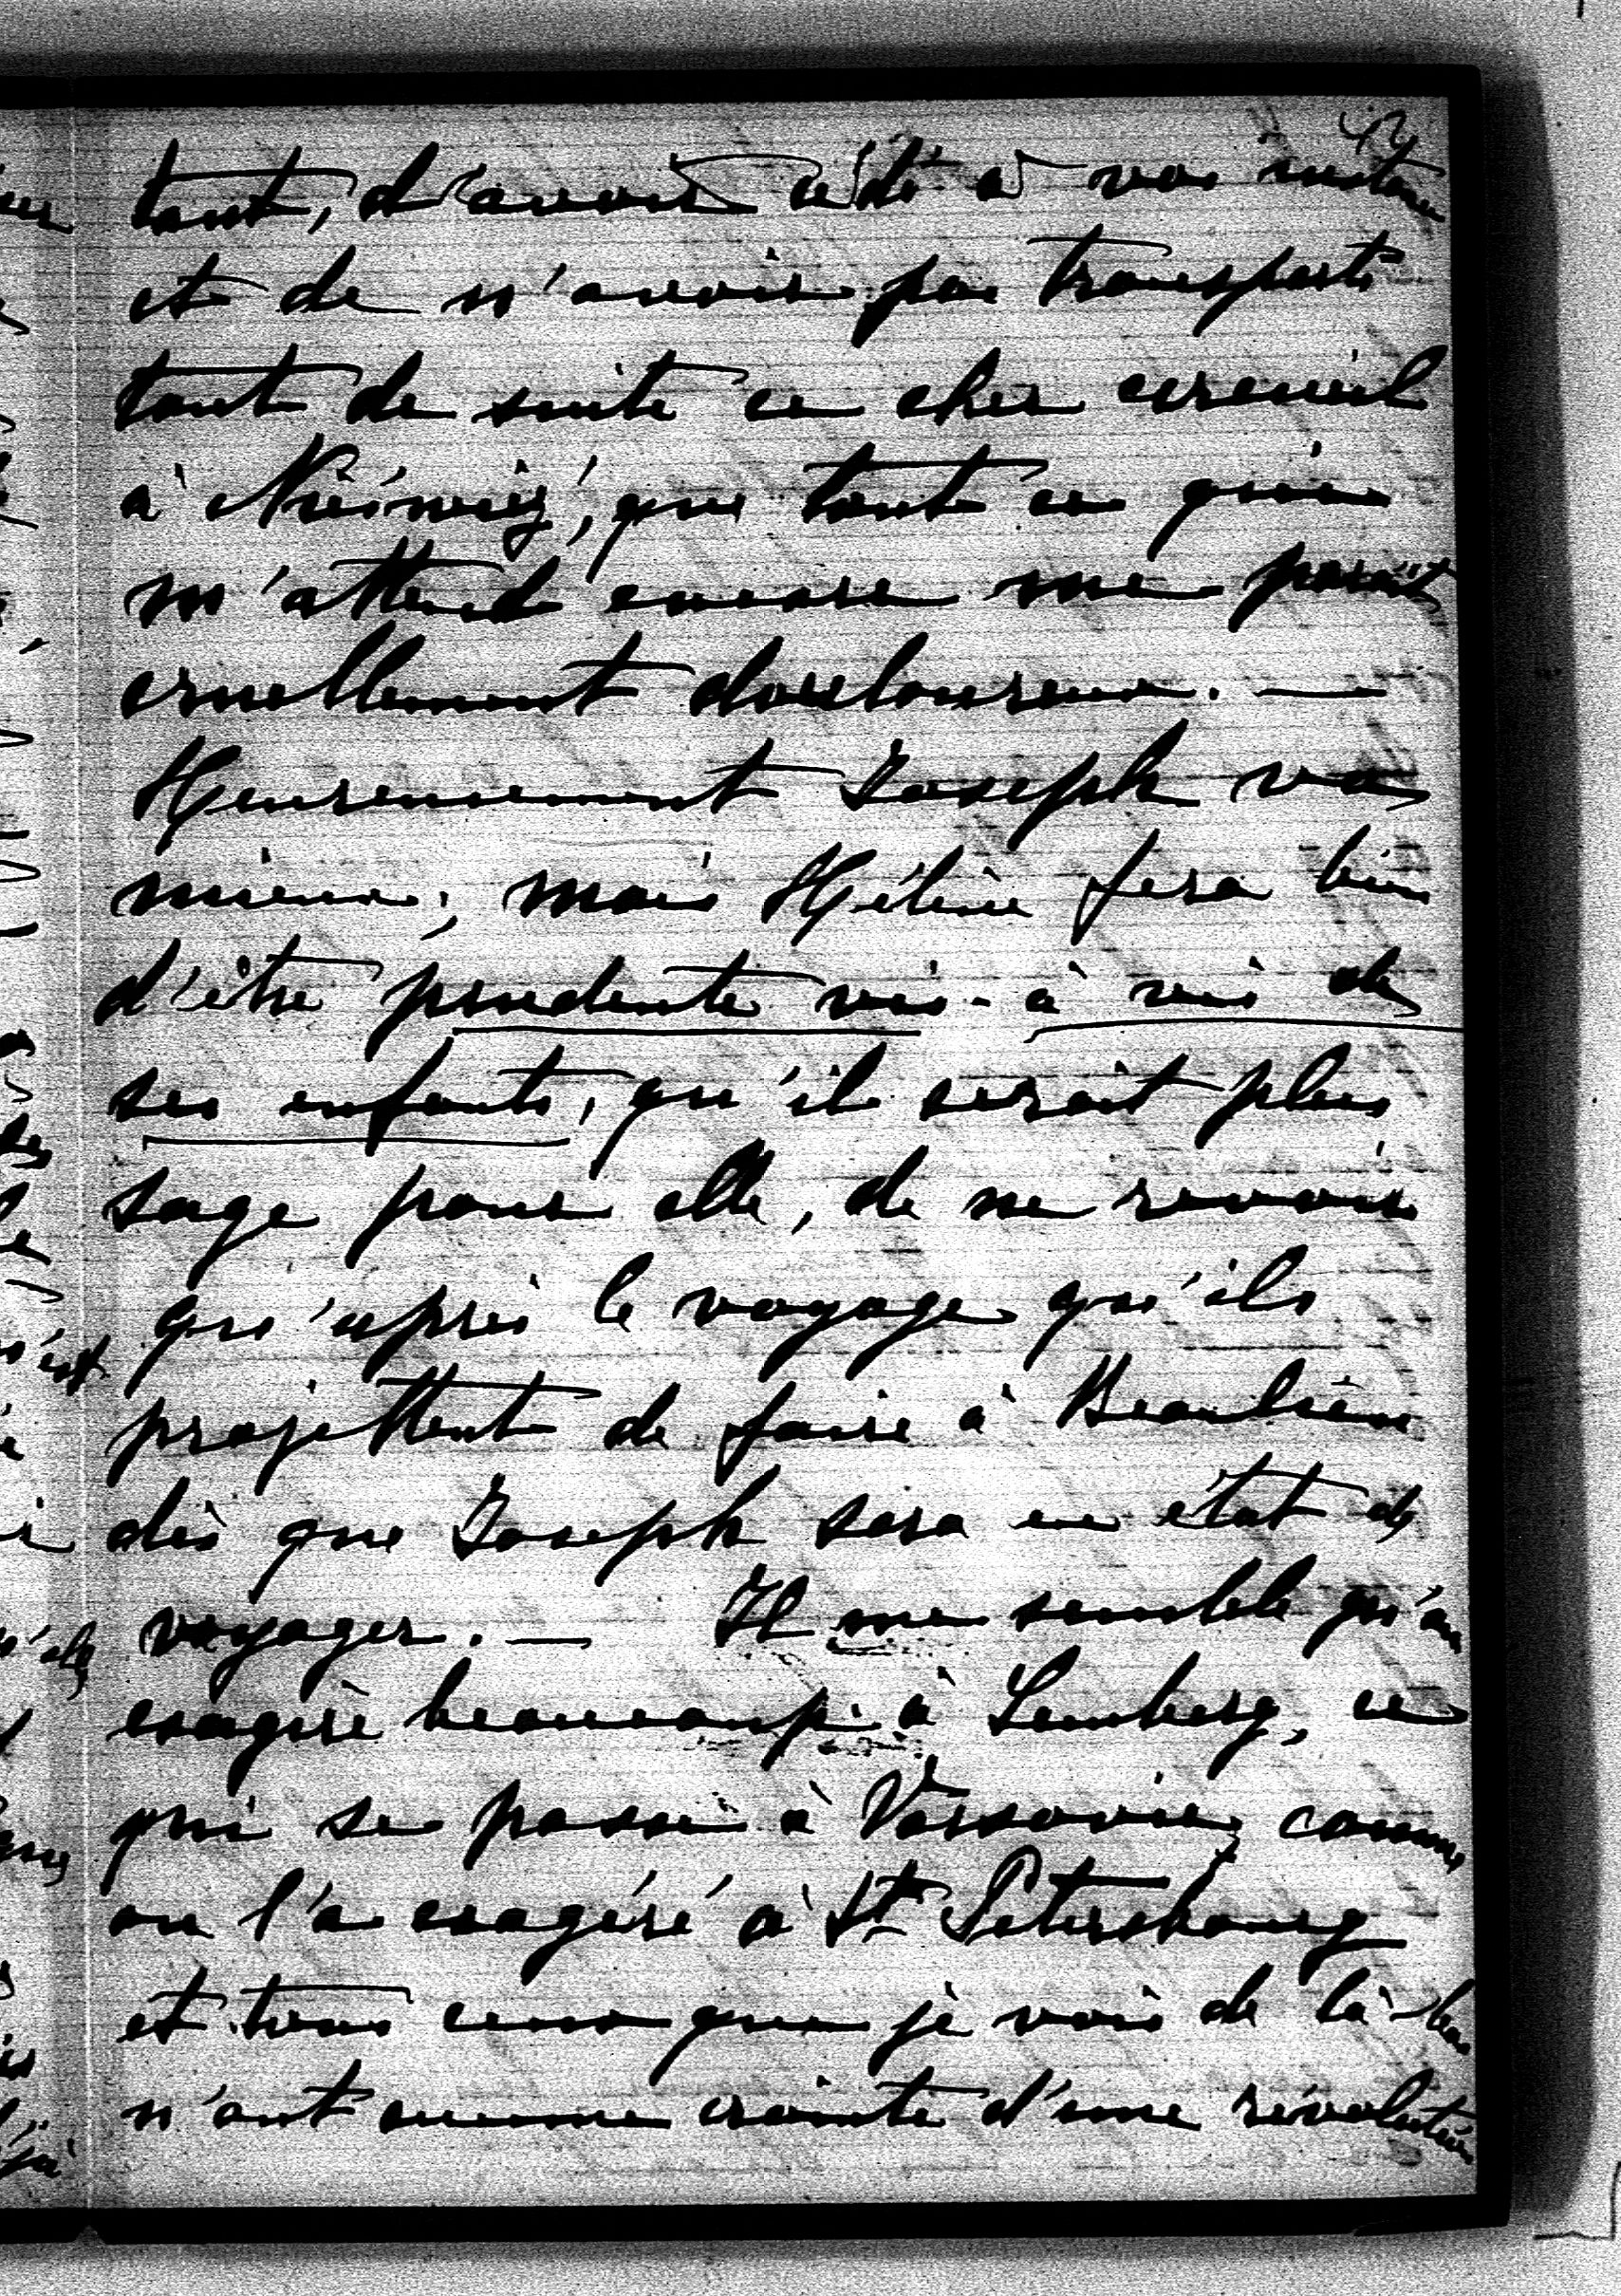 42
tant, d'avoir cédé à vos instances
et de n'avoir pas transporté
tout de suite ce cher cercueil
à Nieśwież, que tout ce qui
m'attend encore me paraît
cruellement douloureux. —
Heureusement Joseph va
mieux; mais Hélène fera bien
d'être prudente vis-à vis de
ses enfants, qu'il serait plus
sage pour elle, de ne revoir
qu'après le voyage qu'ils
projettent de faire à Beaulieu
dès que Joseph sera en état de
voyager. — Il me semble qu'on
exagère beaucoup à Lemberg, ce
qui se passe à Varsovie, comme
on l'a exagéré à St Pétersbourg
et tous ceux que je vois de là-bas
n'ont aucune crainte d'une révolution